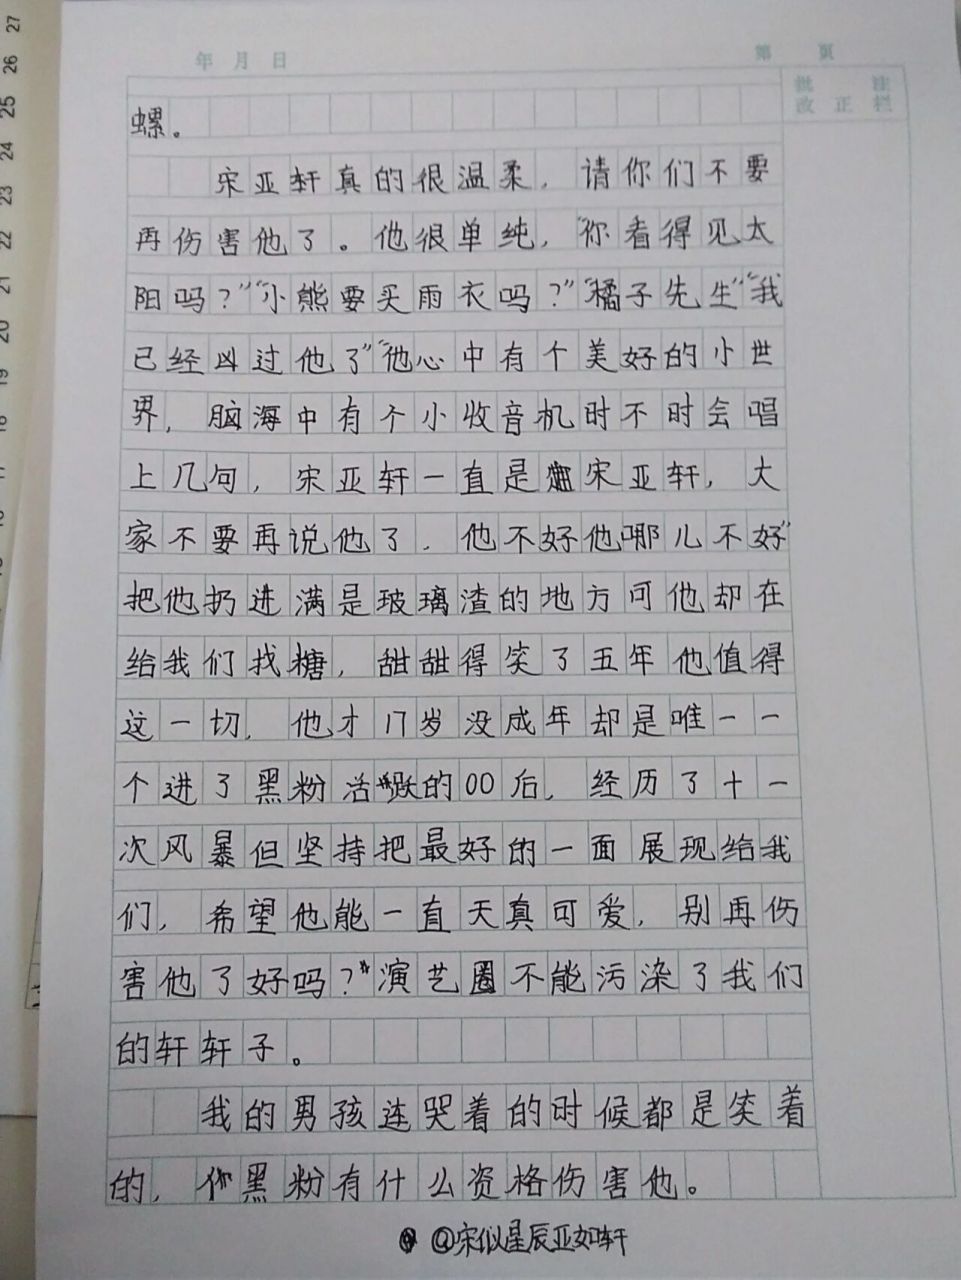 27
26
25
24
23
22
21
20
19
年 月 日
第 页
批 注
改 正 栏
螺。
宋亚轩真的很温柔，请你们不要
再伤害他了。他很单纯，“你看得见太
阳吗？”“小熊要买雨衣吗？”“橘子先生”“我
已经凶过他了”他心中有个美好的小世
界，脑海中有个小收音机时不时会唱
上几句，宋亚轩一直是宋亚轩，大
家不要再说他了．他不好他哪儿不好”
把他扔进满是玻璃渣的地方可他却在
给我们找糖，甜甜得笑了五年他值得
这一切，他才17岁没成年却是唯一一
个进了黑粉活跃的00后，经历了十一
次风暴但坚持把最好的一面展现给我
们，希望他能一直天真可爱，别再伤
害他了好吗？演艺圈不能污染了我们
的轩轩子。
我的男孩连哭着的时候都是笑着
的，你黑粉有什么资格伤害他。
@宋似星辰亚如轩